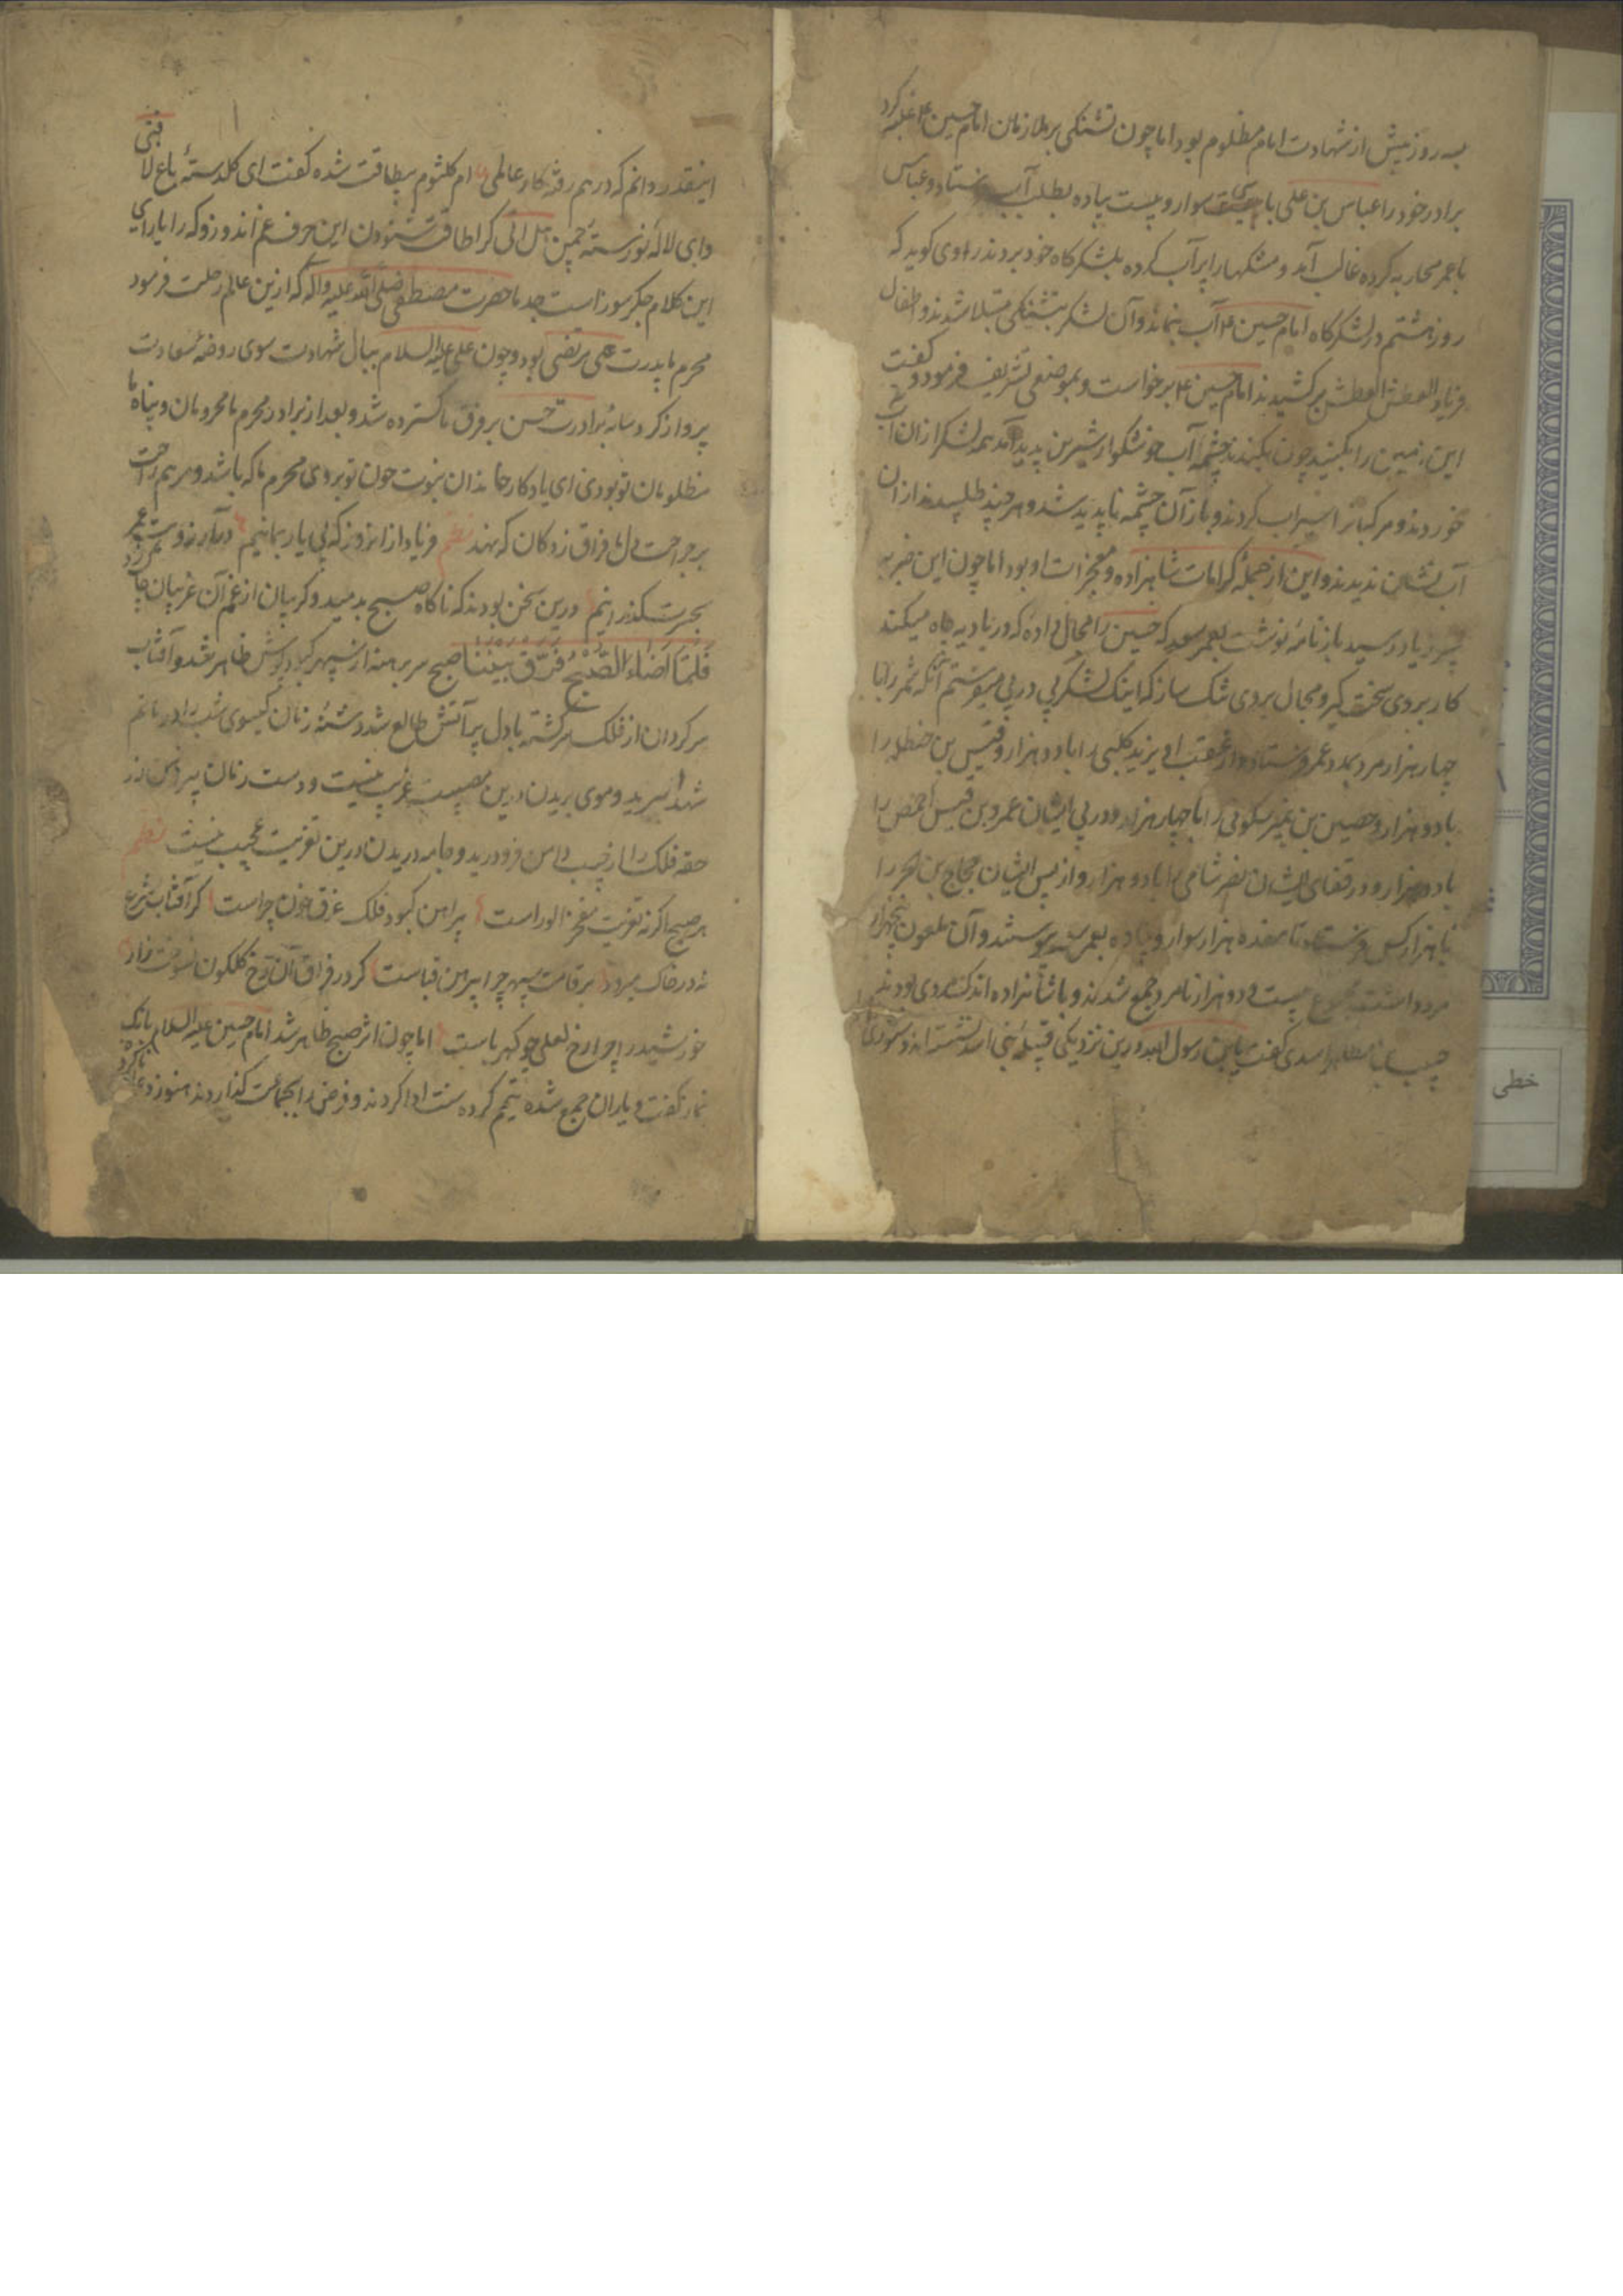 سه روز پیش از شهادت امام مظلوم بود اما چون تشنکی بر ملازمان امام حسین ع غلبه کرد
برادر خود را عباس بن علی با سی سوار و بیست پیاده بطلب آب فرستاد و عباس
با عمر محاربه کرده غالب آمد و مشکها را پر آب کرده بلشکرکاه خود بردند راوی کوید که
روز هشتم در لشکرکاه امام حسین ع آب نماند و آن لشکر بتشنکی مبتلا شدند و اطفال
فریاد العطش العطش برکشیدند امام حسین ع برخواست و بموضعی تشریف فرمود و کفت
این زمین را بکنید چون بکندند چشمه آب خوشکوار شیرین پدید آمد همه لشکر ازان آب
خوردند و مرکبانرا سیراب کردند و باز آن چشمه ناپدید شد و هر چند طلبیدند ازان
آب نشان ندیدند و این از جمله کرامات شاهزاده و معجزات او بود اما چون این خبر به
پسر زیاد رسید باز نامه نوشت بعمر سعد که حسین را مجال داده که در بادیه چاه میکند
کار بروی سخت کیر و مجال بروی تنک ساز که اینک لشکر پی در پی میفرستم آنکه شمر را با
چهار هزار مرد بمدد عمر فرستاد و از عقب او یزید کلبی را با دو هزار و قیس بن حنظله را
با دو هزار و حصین بن نمیر سکونی را با چهار هزار و در پی ایشان عمرو بن قیس احمص را
با دو هزار و در قفای ایشان نصر شامی را با دو هزار و از پس ایشان حجاج بن الحر را
با هزار کس فرستاد تا هفده هزار سوار و پیاده بعمر سعد پیوستند و آن ملعون پنجهزار
مرد داشت مجموع بیست و دو هزار نامرد جمع شدند و با شاهزاده اندک مردی بودند
حبیب بن مظاهر اسدی کفت یا بن رسول الله درین نزدیکی قبیله بنی اسد نشسته اند
اینقدر دانم که درهم رفته کار عالمی ام کلثوم بیطاقت شده کفت ای کلدسته باغ لافتی
وای لاله نورسته چمن هل اتی کرا طاقت شنودن این حرف غم اندوز و که را یارای
این کلام جکرسوز است جد ما حضرت مصطفی صلی الله علیه واله که ازین عالم رحلت فرمود
محرم ما پدرت علی مرتضی بود و چون علی علیه السلام ببال شهادت سوی روضه سعادت
پرواز کرد سایه برادرت حسن بر فرق ما کسترده شد و بعد از برادر محرم ما محرومان و پناه ما
مظلومان تو بودی ای یادکار خاندان نبوت چون تو بروی محرم ما که باشد و مرهم راحت
بر جراحت دل ما فراق زدکان که نهد نظم فریاد ازانروز که بی یار بمانیم در آرزوست عمر
بحسرت بکذرانیم درین سخن بودند که ناکاه صبح بدمید و کریبان از غم آن غریبان چاک زد
فَلَمَّا اَضاءَ الصُّبْحُ فَرَّقَ بَیْنَنا صبح سر برهنه از سپهر کبودپوش ظاهر شد و آفتاب
سرکردان از فلک سرکشته با دل پر آتش طالع شد دشنه زنان کیسوی شب را در ماتم
شهدا ببرید و موی بریدن درین مصیبت غریب نیست و دست زنان پیراهن زر
حقه فلک را از جیب دامن فرو درید و جامه دریدن درین تعزیت عجیب نیست نظم
هر صبح اکر نه تعزیت مفخر الوراست پیراهن کبود فلک غرق خون چراست کر آفتاب شرع
نه در خاک میرود بر قامت سپهر چرا پیرهن قباست کر در فراق آن رخ کلکون نسوخت زار
خورشید را چرا رخ لعلی چو کهرباست اما چون اثر صبح ظاهر شد امام حسین علیه السلام بانک
نماز کفت و یاران جمع شده تیمم کرده سنت ادا کردند و فرض را بجماعت کذاردند هنوز دعا ناکرده
خطی